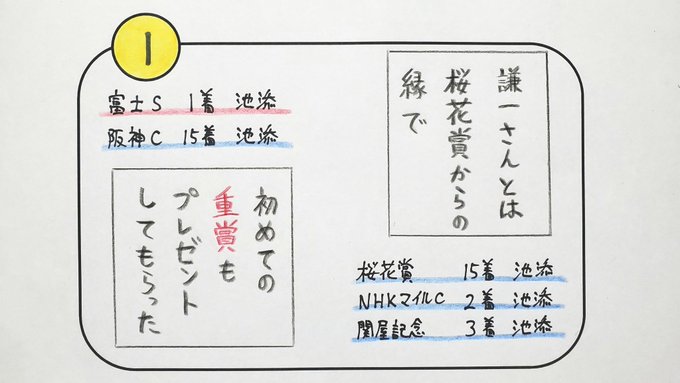 1
謙一さんとは
桜花賞からの
縁で
桜花賞 15着 池添
NHKマイルC 2着 池添
関屋記念 3着 池添
富士S 1着 池添
阪神C 15着 池添
初めての
重賞も
プレゼント
してもらった